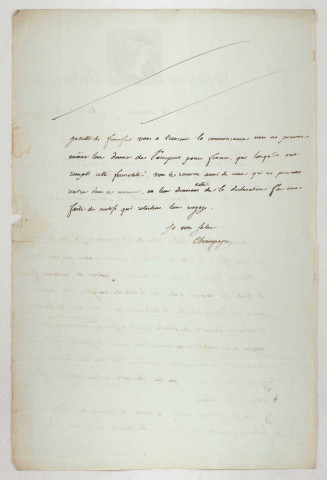 gazette de francfort vous a transmis la connaissance vous ne pouvez
même leur donner des Passeports pour france, que lorsqu'ils ont
rempli cette formalité. vous le recevrez aussi de ceux qui ne peuvent
rentrer dans ce moment, en leur donnant acte de la déclaration par eux
faite des motifs qui retardent leur voyage.
Je vous salue
Champagny